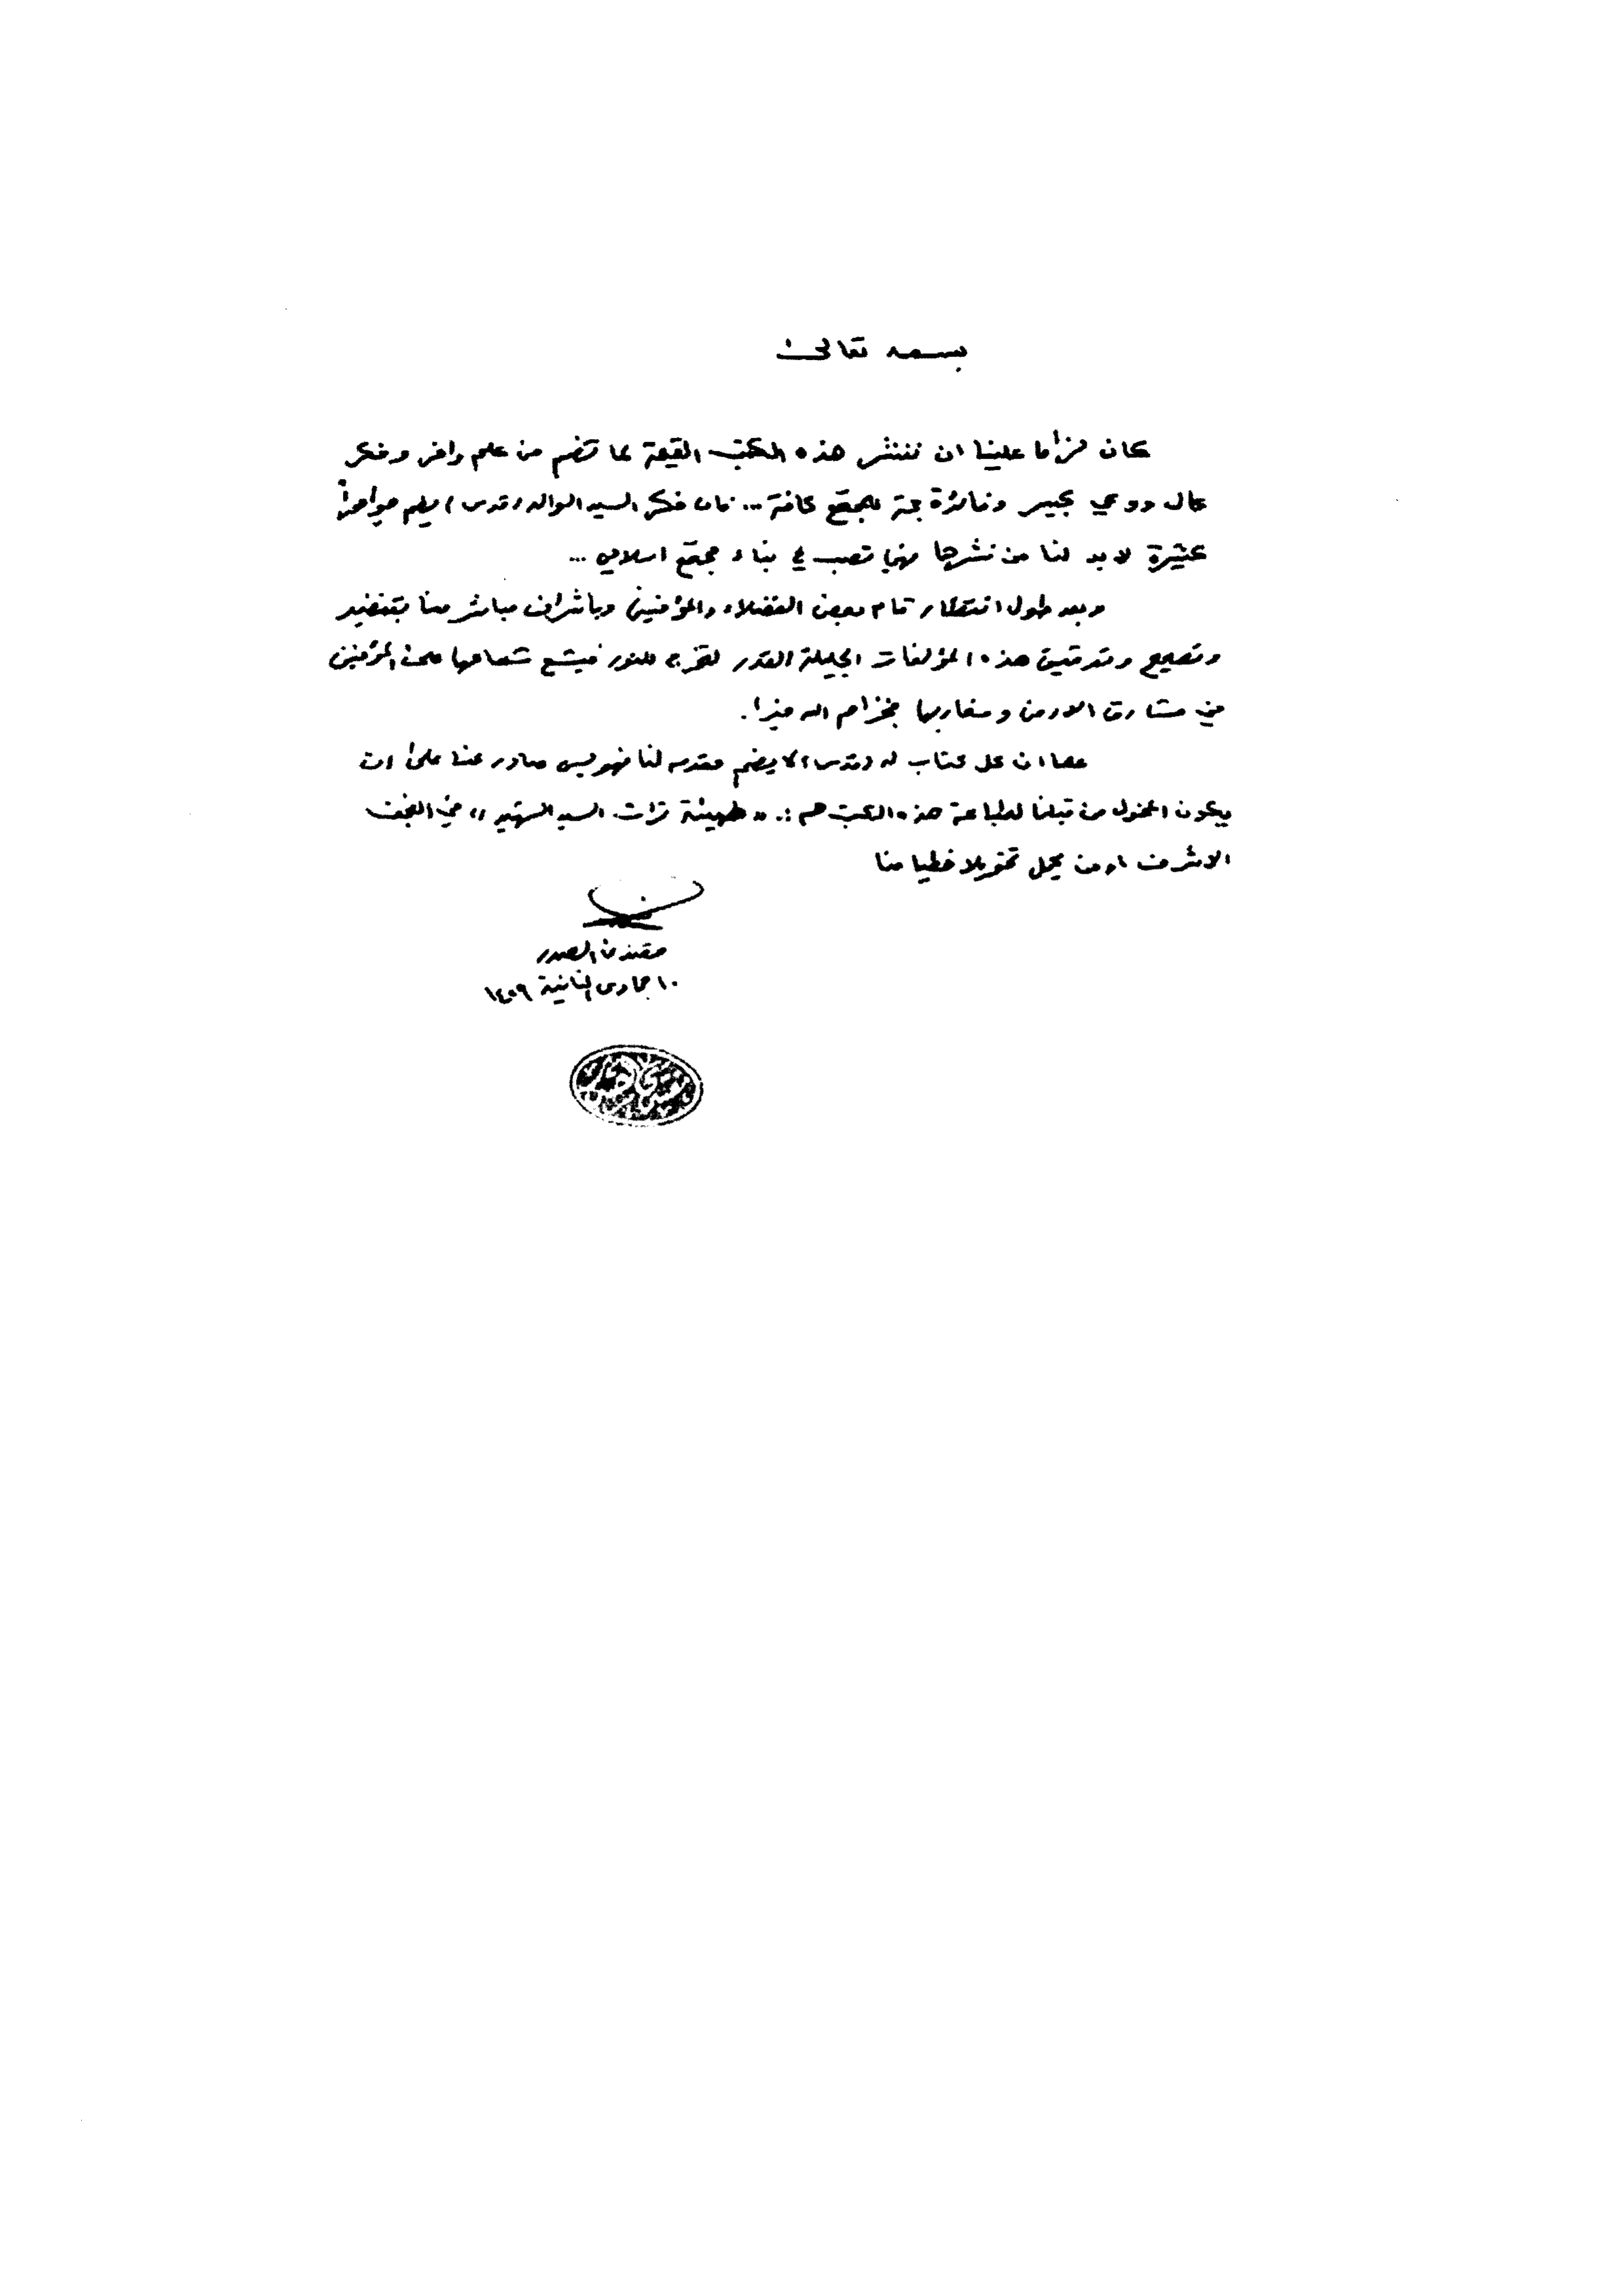 بسمه تعالى
كان لزاما علينا ان ننشر هذه الكتب القيمة لما تضم من علم وافر وفكر
عال ووعي كبير وفائدة جمة للمجتمع كافة ... فان فكر السيد الوالد (قدس) يضم مواضيعاً
كثيرة لا بد لنا من نشرها فهي تصب في بناء مجتمع اسلامي ...
وبعد طول انتظار قام بعض الفضلاء والمؤمنين وباشراف مباشر منا بتنضيد
وتصحيح وتدقيق هذه المؤلفات الجليلة القدر لتخرج للنور فيشع شعاعها على المؤمنين
في مشارق الارض ومغاربها فجزاهم الله خيرا.
كما ان كل كتاب له (قدس) لا يضم مقدمه لنا فهو ليس صادر عنا على ان
يكون المخول من قبلنا لطباعة هذه الكتب هم :. «هيئة تراث السيد الشهيد» في النجف
الاشرف او من يحمل تخويلا خطيا منا
مقتدى الصدر
١٠ جمادى الثانية ١٤٢٩